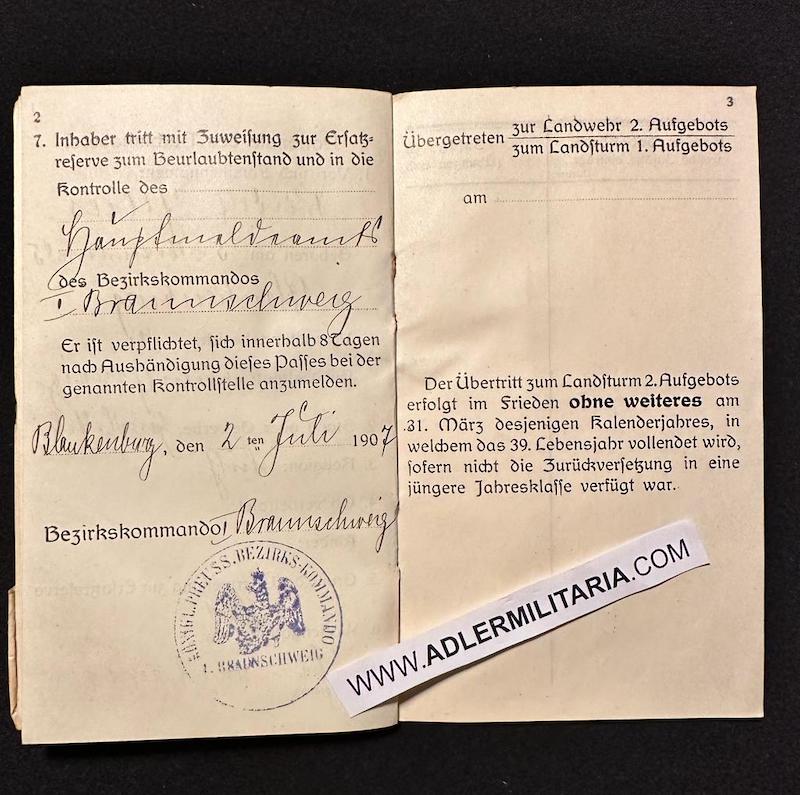 2
7. Inhaber tritt mit Zuweisung zur Ersatz-
reserve zum Beurlaubtenstand und in die
Kontrolle des
Hauptmeldeamts
des Bezirkskommandos
I Braunschweig
Er ist verpflichtet, sich innerhalb 8 Tagen
nach Aushändigung dieses Passes bei der
genannten Kontrollstelle anzumelden.
Blankenburg, den 2 ten Juli 1907
Bezirkskommando I Braunschweig
KÖNIGL. PREUSS. BEZIRKS-KOMMANDO
I. BRAUNSCHWEIG
3
Übergetreten zur Landwehr 2. Aufgebots
zum Landsturm 1. Aufgebots
am
Der Übertritt zum Landsturm 2. Aufgebots
erfolgt im Frieden ohne weiteres am
31. März desjenigen Kalenderjahres, in
welchem das 39. Lebensjahr vollendet wird,
sofern nicht die Zurückversetzung in eine
jüngere Jahresklasse verfügt war.
WWW.ADLERMILITARIA.COM